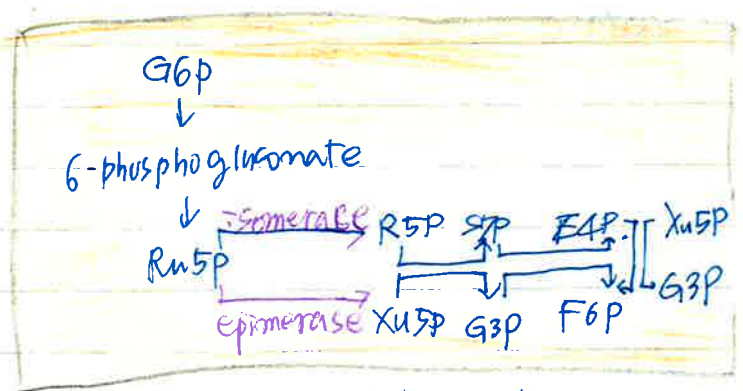 G6P
6-phosphogluconate
isomerase R5P S7P E4P Xu5P
Ru5P
G3P
epimerase Xu5P G3P F6P